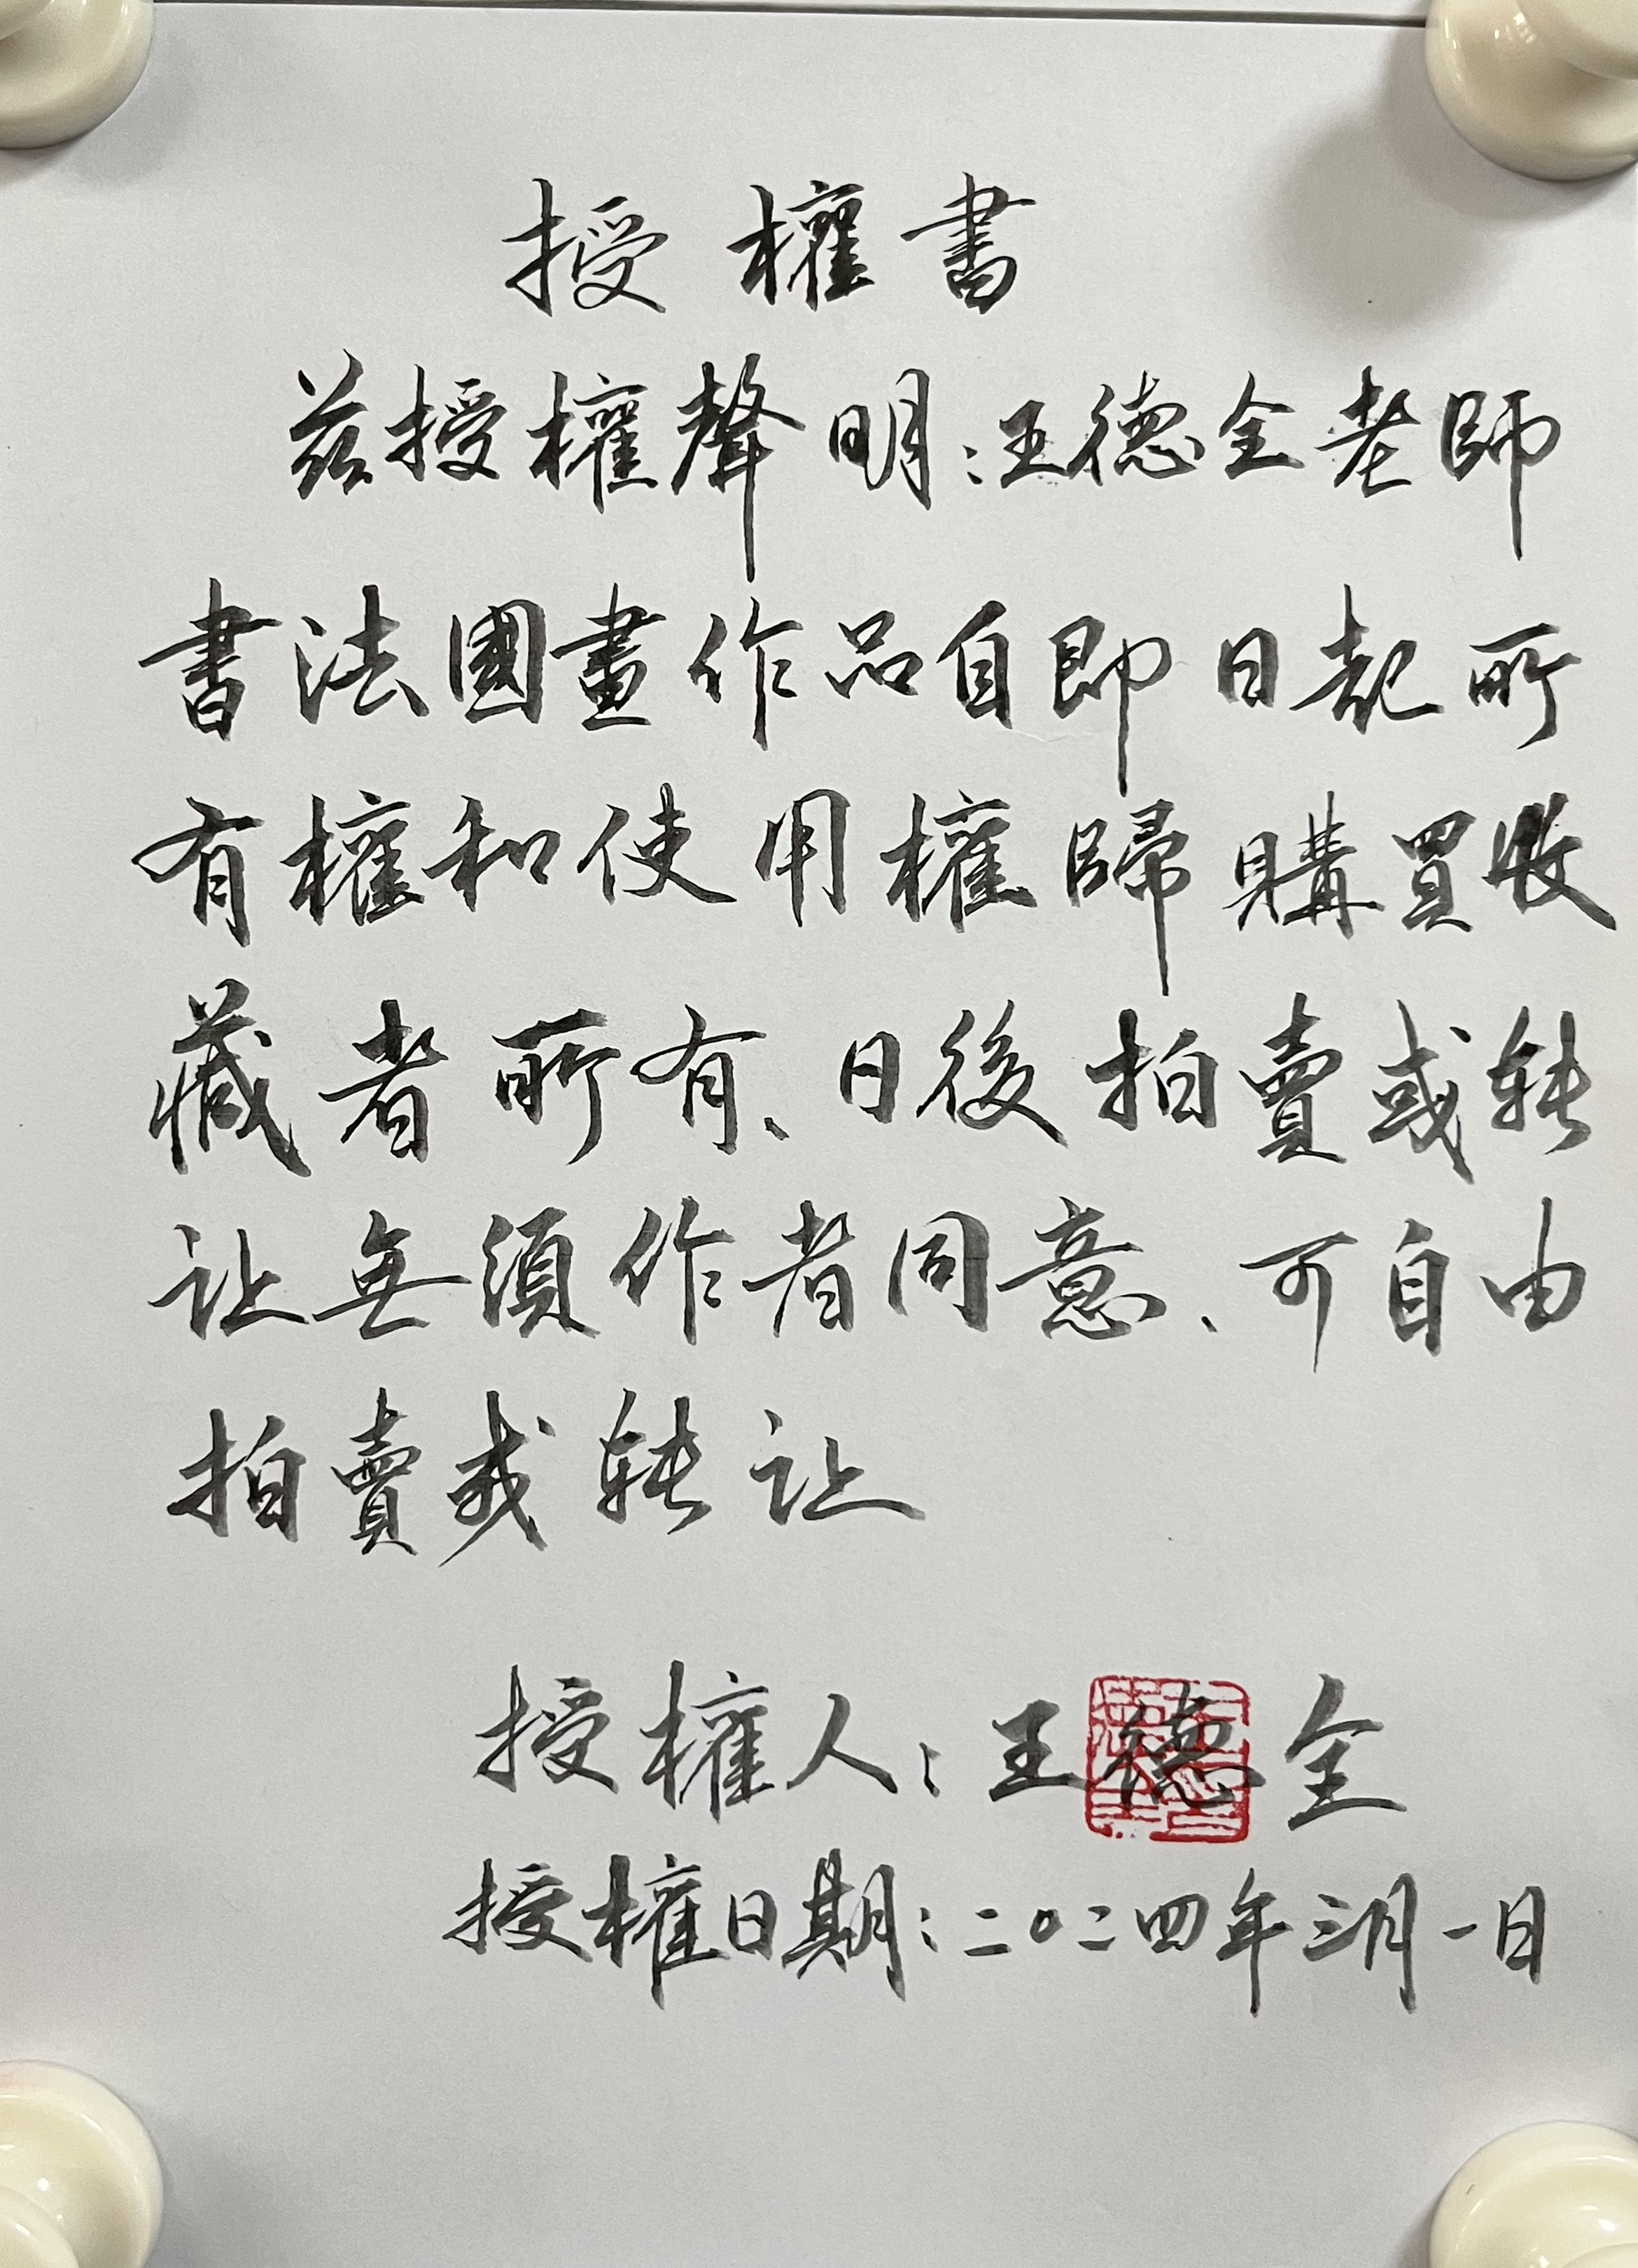 授權書
兹授權聲明:王德全老師
書法國畫作品自即日起所
有權和使用權歸購買收
藏者所有、日後拍賣或转
让無須作者同意、可自由
拍賣或转让
授權人:王德全
授權日期:二〇二四年三月一日